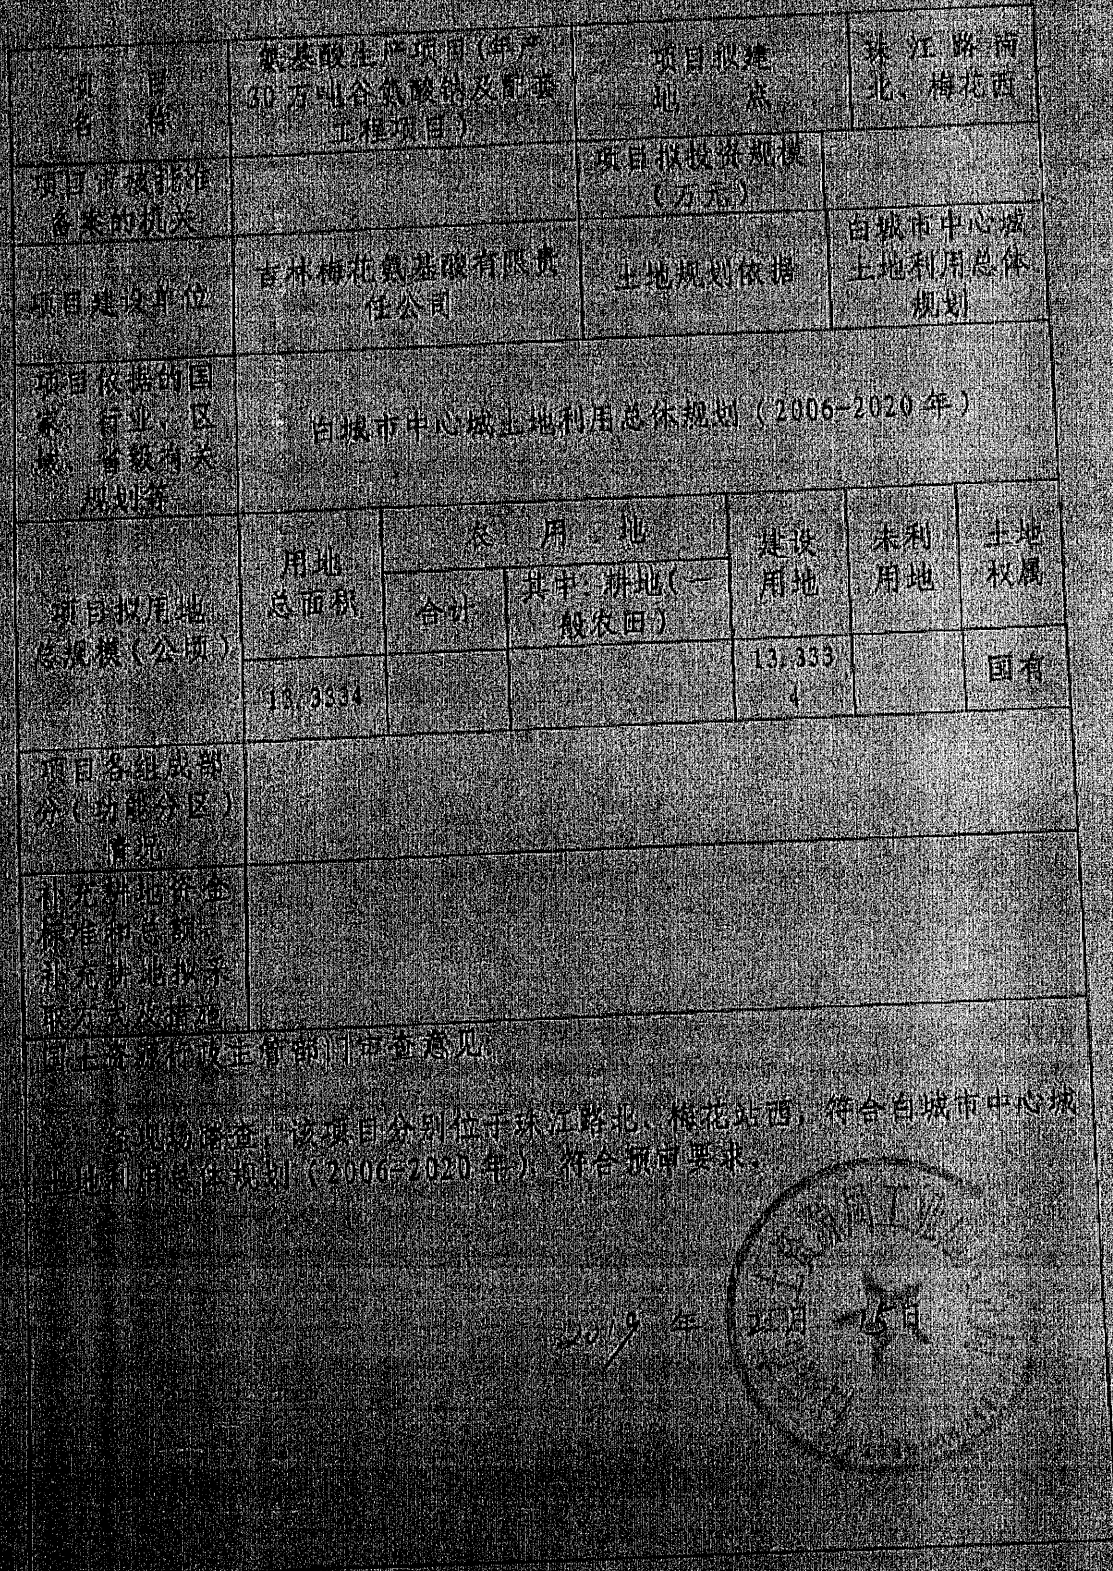 项 目
名 称
氨基酸生产项目(年产
30万吨谷氨酸钠及配套
工程项目)
项目拟建
地 点
珠江路南
北、梅花西
项目审核批准
备案的机关
项目拟投资规模
(万元)
项目建设单位
吉林梅花氨基酸有限责
任公司
土地规划依据
白城市中心城
土地利用总体
规划
项目依据的国
家、行业、区
域、省级有关
规划等
白城市中心城土地利用总体规划(2006-2020年)
项目拟用地
总规模(公顷)
用地
总面积
农 用 地
合计
其中:耕地(一
般农田)
建设
用地
未利
用地
土地
权属
13.3334
13.333
4
国有
项目各组成部
分(功能分区)
情况
补充耕地资金
标准和总额、
补充耕地拟采
取方式及措施
国土资源行政主管部门审查意见:
经现场踏查,该项目分别位于珠江路北、梅花站西,符合白城市中心城
土地利用总体规划(2006-2020年),符合预审要求。
2019年 月 日